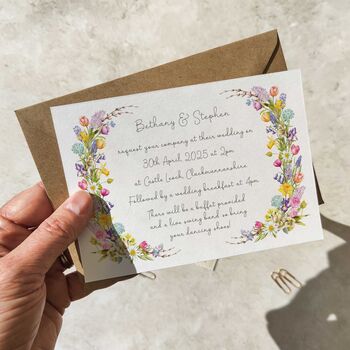 Bethany & Stephen
request your company at their wedding on
30th April, 2025 at 2pm
at Castle Leach, Clackmannanshire
Followed by a wedding breakfast at 4pm
There will be a buffet provided
and a live swing band so bring
your dancing shoes!